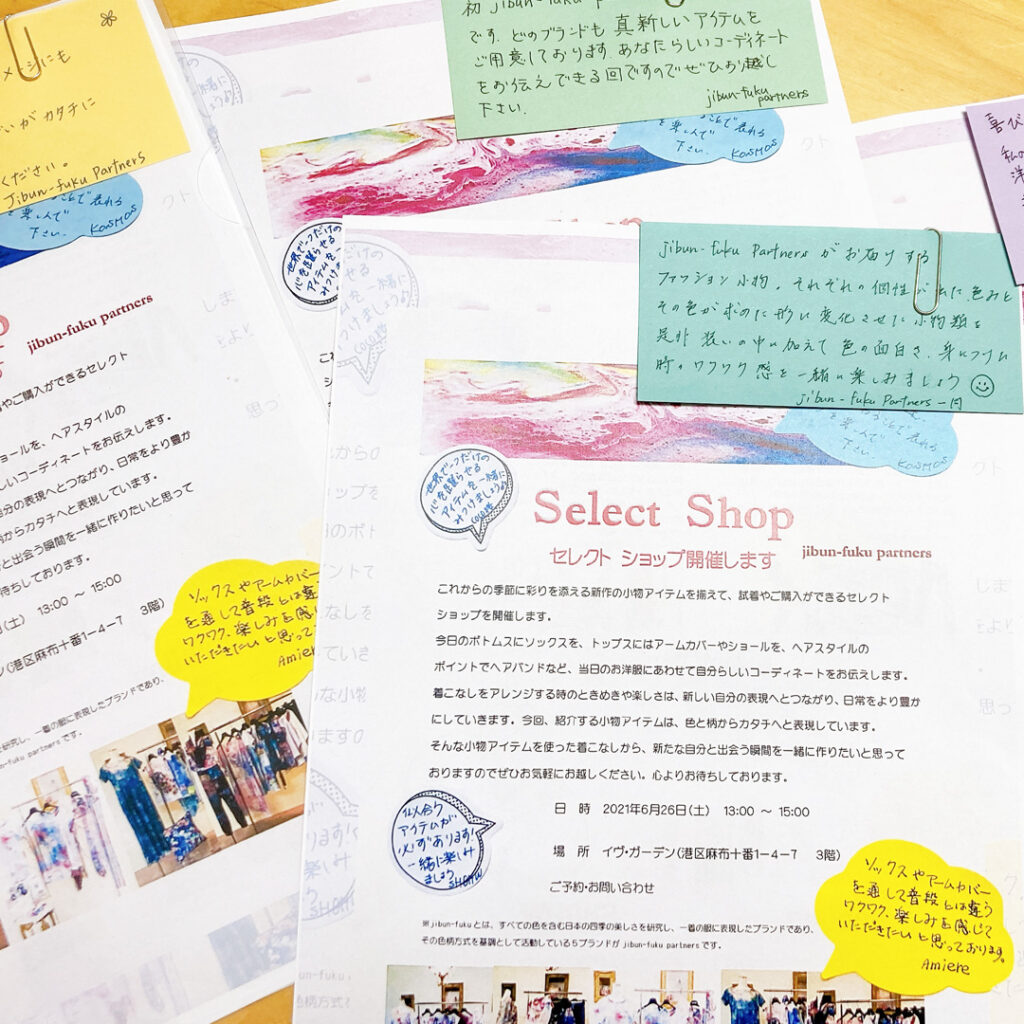 メージにも
いがカタチに
ください。
Jibun-fuku Partners
を楽しんで
下さい。 KOSMOS
jibun-fuku partners
やご購入ができるセレクト
ョールを、ヘアスタイルの
しいコーディネートをお伝えします。
自分の表現へとつながり、日常をより豊か
からカタチへと表現しています。
と出会う瞬間を一緒に作りたいと思って
待ちしております。
(土) 13:00 ～ 15:00
(港区麻布十番1−4−7 3階)
ソックスやアームカバー
を通して普段とは違う
ワクワク、楽しみを感じ
いただきたいと思って
Amiere
を研究し、一着の服に表現したブランドであり、
jibun-fuku partners です。
初 jibun-fuku
です。どのブランドも真新しいアイテムを
ご用意しております。あなたらしいコーディネート
をお伝えできる回ですのでぜひお越し
下さい。
jibun-fuku
partners
を楽しんで
下さい。 KOSMOS
世界で一つだけの
心を躍らせる
アイテムを一緒に
みつけましょう
喜び
私の
洋
jibun-fuku Partners がお届けする
ファッション小物。それぞれの個性
その色が求めた形に変化させた小物類を
是非装いの中に加えて色の面白さ、身につけた
時のワクワク感を一緒に楽しみましょう
jibun-fuku Partners 一同
を楽しんで
下さい。 KOSMOS
世界で一つだけの
心を躍らせる
アイテムを一緒に
みつけましょう
Select Shop
セレクト ショップ開催します jibun-fuku partners
これからの季節に彩りを添える新作の小物アイテムを揃えて、試着やご購入ができるセレクト
ショップを開催します。
今日のボトムスにソックスを、トップスにはアームカバーやショールを、ヘアスタイルの
ポイントでヘアバンドなど、当日のお洋服にあわせて自分らしいコーディネートをお伝えします。
着こなしをアレンジする時のときめきや楽しさは、新しい自分の表現へとつながり、日常をより豊か
にしていきます。今回、紹介する小物アイテムは、色と柄からカタチへと表現しています。
そんな小物アイテムを使った着こなしから、新たな自分と出会う瞬間を一緒に作りたいと思って
おりますのでぜひお気軽にお越しください。心よりお待ちしております。
日 時 2021年6月26日(土) 13:00 ～ 15:00
場 所 イヴ・ガーデン(港区麻布十番1−4−7 3階)
ご予約・お問い合わせ
似合う
アイテムが
必ずあります!
一緒に楽しみ
ましょう
ソックスやアームカバー
を通して普段とは違う
ワクワク、楽しみを感じて
いただきたいと思っております。
Amiere
※jibun-fukuとは、すべての色を含む日本の四季の美しさを研究し、一着の服に表現したブランドであり、
その色柄方式を基調として活動している5ブランドが jibun-fuku partners です。